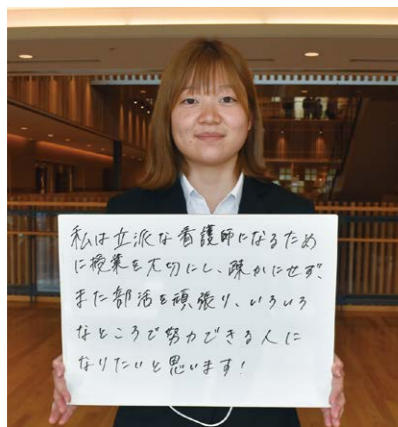 私は立派な看護師になるため
に授業を大切にし、疎かにせず、
また部活を頑張り、いろいろ
なところで努力できる人に
なりたいと思います!